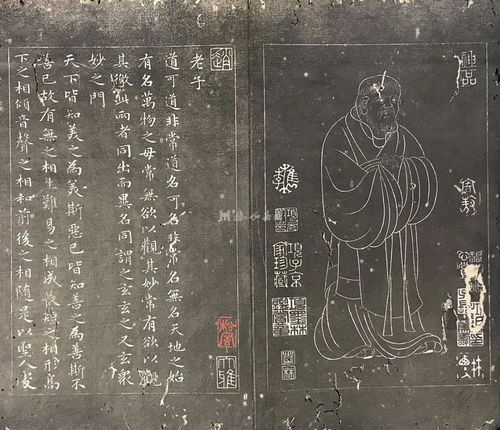 神品
項子京
家珍藏
趙
老子
道可道非常道名可名非常名無名天地之始
有名萬物之母常無欲以觀其妙常有欲以觀
其徼此兩者同出而異名同謂之玄玄之又玄衆
妙之門
天下皆知美之為美斯惡已皆知善之為善斯不
善已故有無之相生難易之相成長短之相形高
下之相傾音聲之相和前後之相隨是以聖人處
大雅